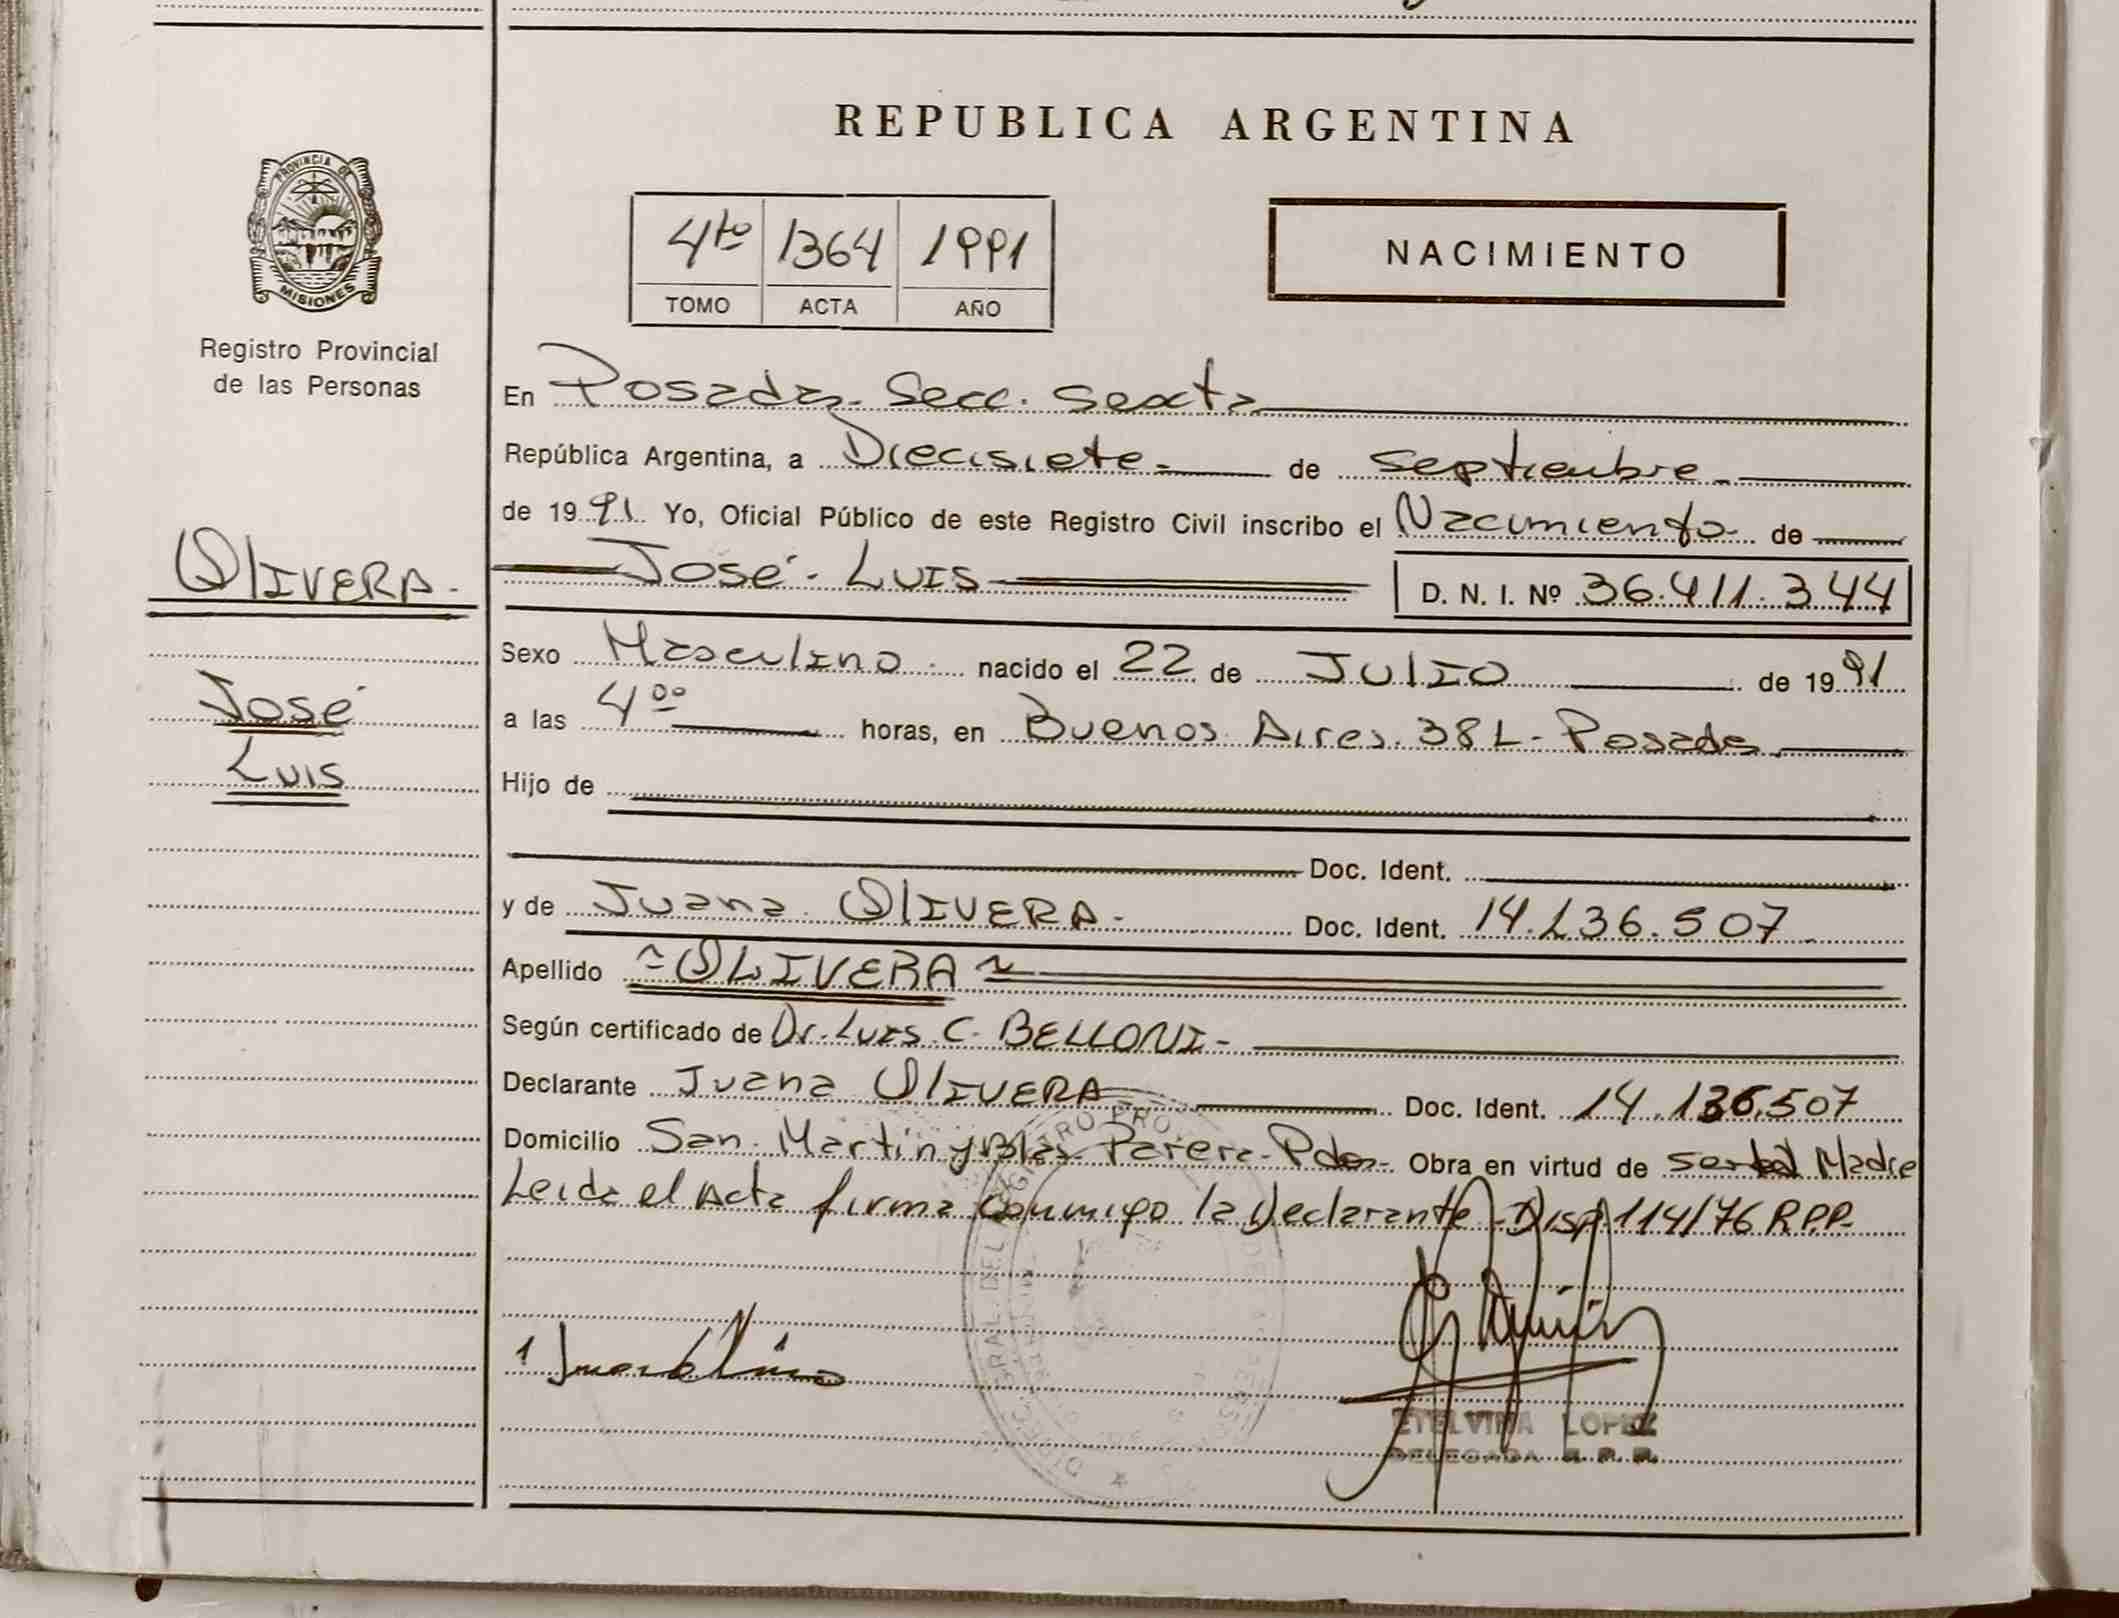 REPUBLICA ARGENTINA
PROVINCIA DE
MISIONES
Registro Provincial
de las Personas
4to 1364 1991
TOMO ACTA AÑO
NACIMIENTO
En Posadas - Secc. Sexta
República Argentina, a Diecisiete - de septiembre -
de 1991 Yo, Oficial Público de este Registro Civil inscribo el Nacimiento de
José - Luis
D. N. I. Nº 36.411.344
OLIVERA -
José
Luis
Sexo Masculino - nacido el 22 de JULIO de 1991
a las 4 00 horas, en Buenos Aires 381 - Posadas
Hijo de
Doc. Ident.
y de Juana OLIVERA - Doc. Ident. 14.136.507
Apellido ~ OLIVERA ~
Según certificado de Dr. Luis C. BELLONI -
Declarante Juana OLIVERA Doc. Ident. 14.136.507
Domicilio San Martin y Blas Parera - Pdas - Obra en virtud de ser la Madre
Leida el Acta firma conmigo la Declarante - Disp 114/76 RPP -
ETELVINA LOPEZ
DELEGADA R. P. P.